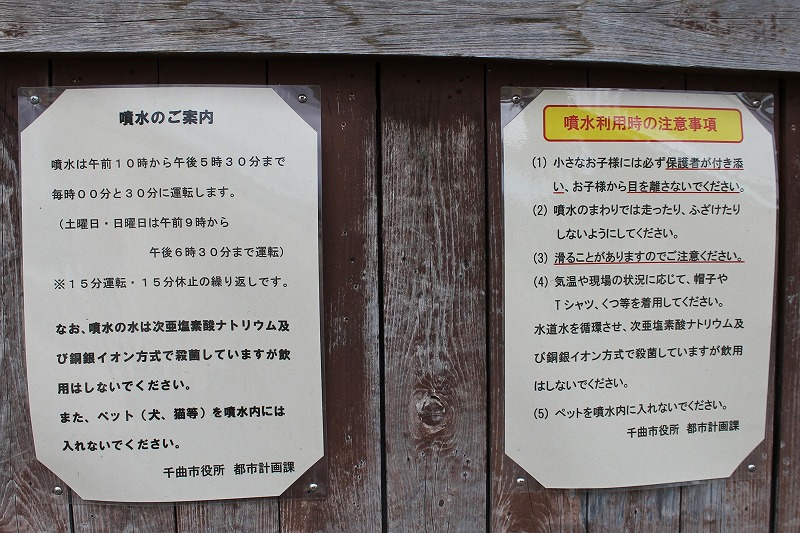 噴水のご案内
噴水は午前１０時から午後５時３０分まで
毎時００分と３０分に運転します。
（土曜日・日曜日は午前９時から
午後６時３０分まで運転）
※１５分運転・１５分休止の繰り返しです。
なお、噴水の水は次亜塩素酸ナトリウム及
び銅銀イオン方式で殺菌していますが飲
用はしないでください。
また、ペット（犬、猫等）を噴水内には
入れないでください。
千曲市役所 都市計画課
噴水利用時の注意事項
（１）小さなお子様には必ず保護者が付き添
い、お子様から目を離さないでください。
（２）噴水のまわりでは走ったり、ふざけたり
しないようにしてください。
（３）滑ることがありますのでご注意ください。
（４）気温や現場の状況に応じて、帽子や
Ｔシャツ、くつ等を着用してください。
水道水を循環させ、次亜塩素酸ナトリウム及
び銅銀イオン方式で殺菌していますが飲用
はしないでください。
（５）ペットを噴水内に入れないでください。
千曲市役所 都市計画課